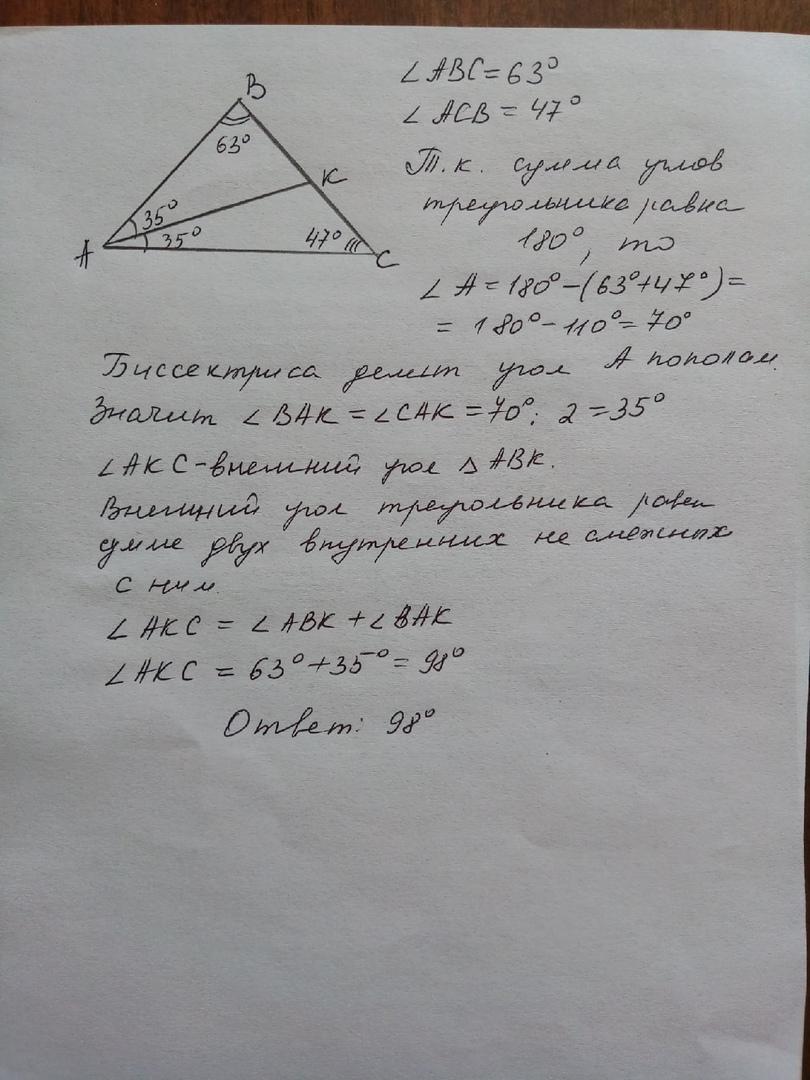 B
63°
K
35°
35°
47°
A
C
∠ABC=63°
∠ACB = 47°
Т.к. сумма углов
треугольника равна
180°, то
∠A=180°-(63°+47°)=
= 180°-110°=70°
Биссектриса делит угол А пополам.
Значит ∠BAK = ∠CAK = 70°: 2 = 35°
∠AKC-внешний угол △ABK.
Внешний угол треугольника равен
сумме двух внутренних не смежных
с ним.
∠AKC = ∠ABK + ∠BAK
∠AKC = 63°+35°= 98°
Ответ: 98°